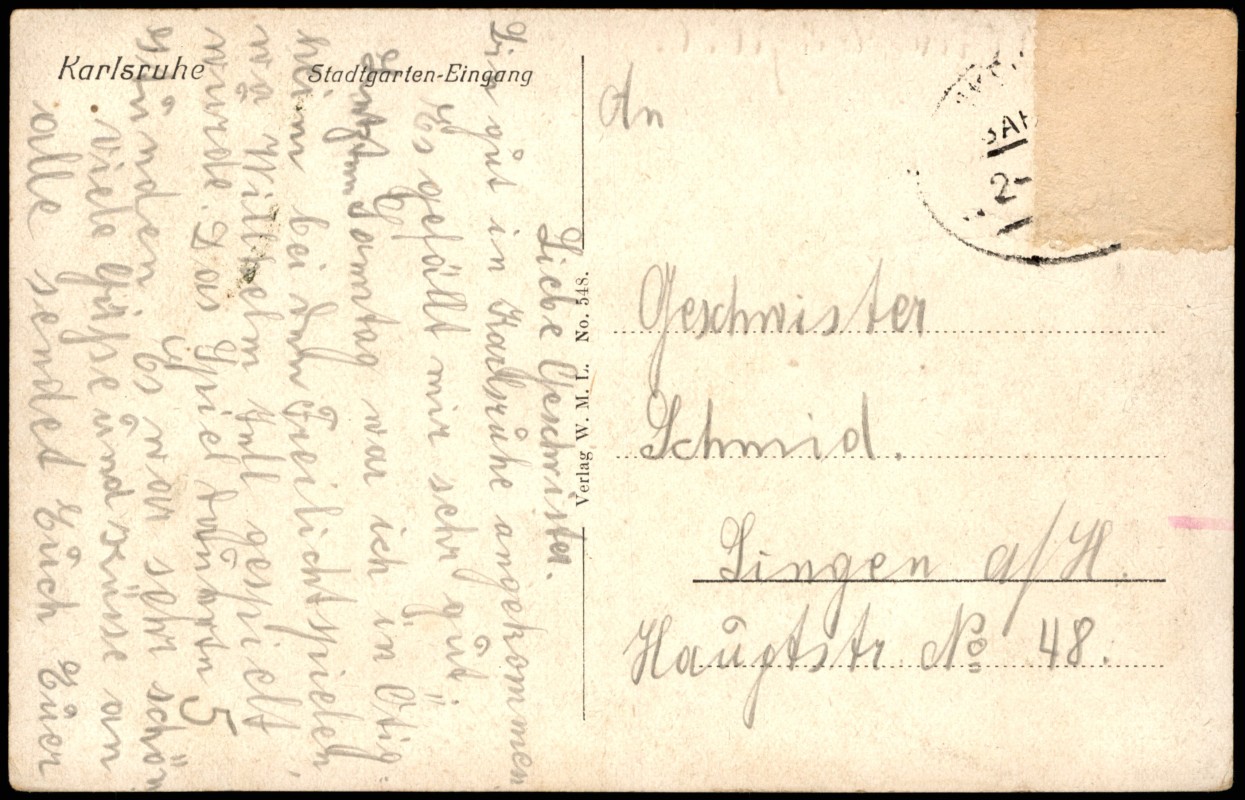 Karlsruhe
Stadtgarten-Eingang
Liebe Geschwister.
Bin gut in Karlsruhe angekommen
Es gefällt mir sehr gut.
Samstag war ich in Ötig-
heim bei dem Freilichtspielen,
wo Wilhelm Tell gespielt
wurde. Das Spiel dauerte 5
Stunden. Es war sehr schön
viele Grüße und Küsse an
alle sendet Euch Euer
Verlag W. M. L. No. 548.
An
Geschwister
Schmid.
Singen a/H.
Hauptstr No 48.